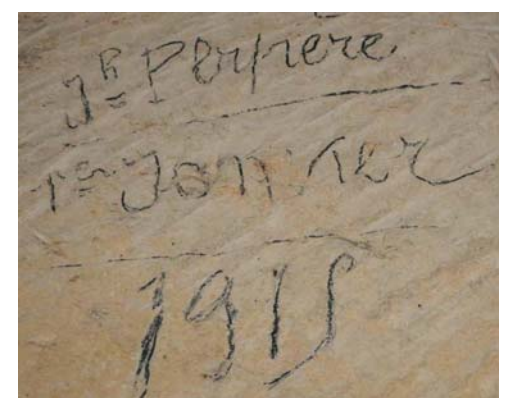 Jh Perpère
1er Janvier
1915